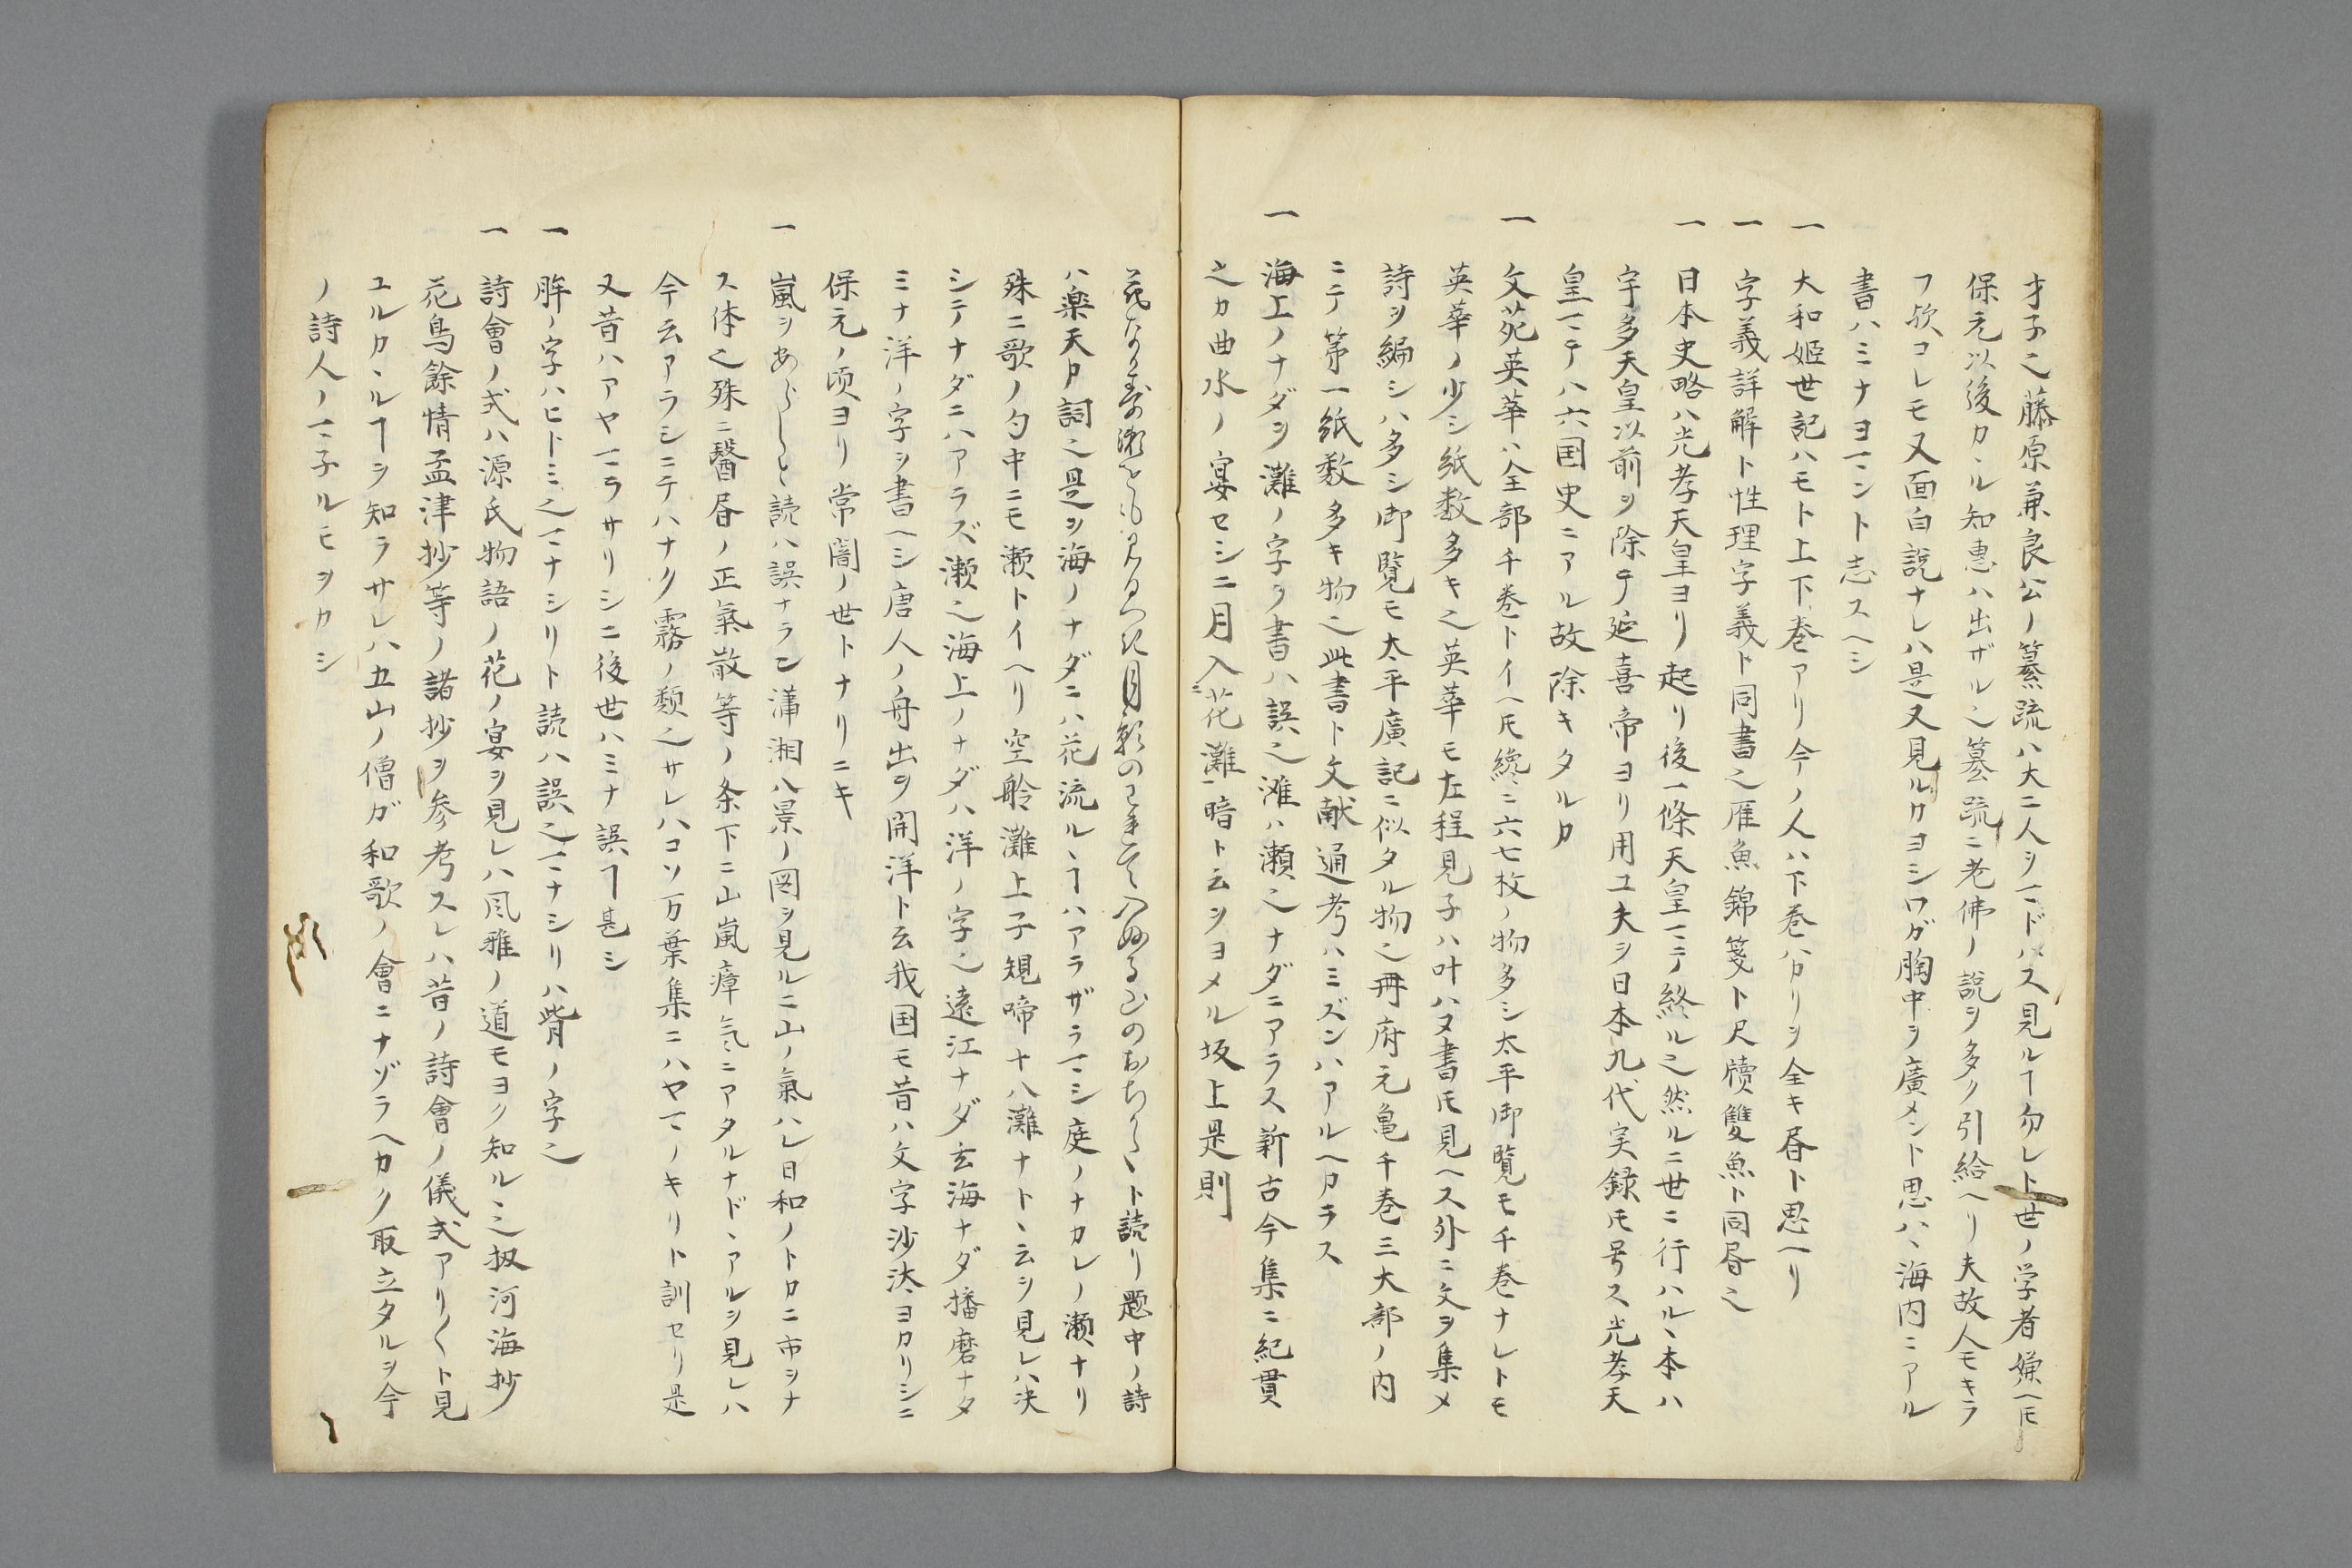 才子之藤原兼良公ノ纂疏ハ大ニ人ヲマドハス見ルヿ勿レト世ノ学者嫌ヘ𪜈
保元以後カヽル知恵ハ出ザル之纂疏ニ老佛ノ説ヲ多ク引給ヘリ夫故人モキラ
フ歟コレモ又面白説ナレハ是又見ルカヨシワガ胸中ヲ廣メント思ハヽ海内ニアル
書ハミナヨマント志スヘシ
一 大和姫世記ハモト上下巻アリ今ノ人ハ下巻ハカリヲ全キ昏ト思ヘリ
一 字義詳解ト性理字義ト同書之雁魚錦箋ト尺牘雙魚ト同昏之
一 日本史略ハ光孝天皇ヨリ起リ後一條天皇マテノ終ル之然ルニ世ニ行ハルヽ本ハ
宇多天皇以前ヲ除テ延喜帝ヨリ用ユ夫ヲ日本九代実録𪜈号ス光孝天
皇マテハ六国史ニアル故除キタルカ
一 文苑英華ハ全部千巻トイヘ𪜈纔ニ六七枚ノ物多シ太平御覧モ千巻ナレトモ
英華ノ少シ紙数多キ之英華モ左程見子ハ叶ハヌ書𪜈見ヘス外ニ文ヲ集メ
詩ヲ編シハ多シ御覧モ太平廣記ニ似タル物之冊府元亀千巻三大部ノ内
ニテ第一紙数多キ物之此書ト文献通考ハミズンハアルヘカラス
一 海上ノナダヲ灘ノ字ヲ書ハ誤之灘ハ瀬之ナダニアラス新古今集ニ紀貫
之カ曲水ノ宴セシニ月入花灘暗ト云ヲヨメル坂上是則
花なかす瀬をも見るへき月影のわれて入ぬる山のおちかたヽト読リ題中ノ詩
ハ楽天カ詞之是ヲ海ノナダニハ花流ルヽヿハアラザラマシ庭ノナカレノ瀬ナリ
殊ニ歌ノ句中ニモ瀬トイヘリ空舲灘上子規啼十八灘ナトヽ云ヲ見レハ決
シテナダニハアラズ瀬之海上ノナダハ洋ノ字之遠江ナダ玄海ナダ播磨ナタ
ミナ洋ノ字ヲ書ヘシ唐人ノ舟出ヲ開洋ト云我国モ昔ハ文字沙汰ヨカリシニ
保元ノ頃ヨリ常闇ノ世トナリニキ
一 嵐ヲあらしと読ハ誤ナラン瀟湘八景ノ図ヲ見ルニ山ノ氣ハレ日和ノトカニ市ヲナ
ス体之殊ニ醫昏ノ正氣散等ノ条下ニ山嵐瘴気ニアタルナドヽアルヲ見レハ
今云アラシニテハナク霧ノ類之サレハコソ万葉集ニハヤマノキリト訓セリ是
又昔ハアヤマラサリシニ後世ハミナ誤ヿ甚シ
一 眸ノ字ハヒトミ之マナシリト読ハ誤之マナシリハ眥ノ字之
一 詩會ノ式ハ源氏物語ノ花ノ宴ヲ見レハ风雅ノ道モヨク知ルヽ之扨河海抄
花鳥餘情孟津抄等ノ諸抄ヲ参考スレハ昔ノ詩會ノ儀式アリ〱ト見
ユルカヽルヿヲ知ラサレハ五山ノ僧ガ和歌ノ會ニナゾラヘカク取立タルヲ今
ノ詩人ノマ子ルモヲカシ